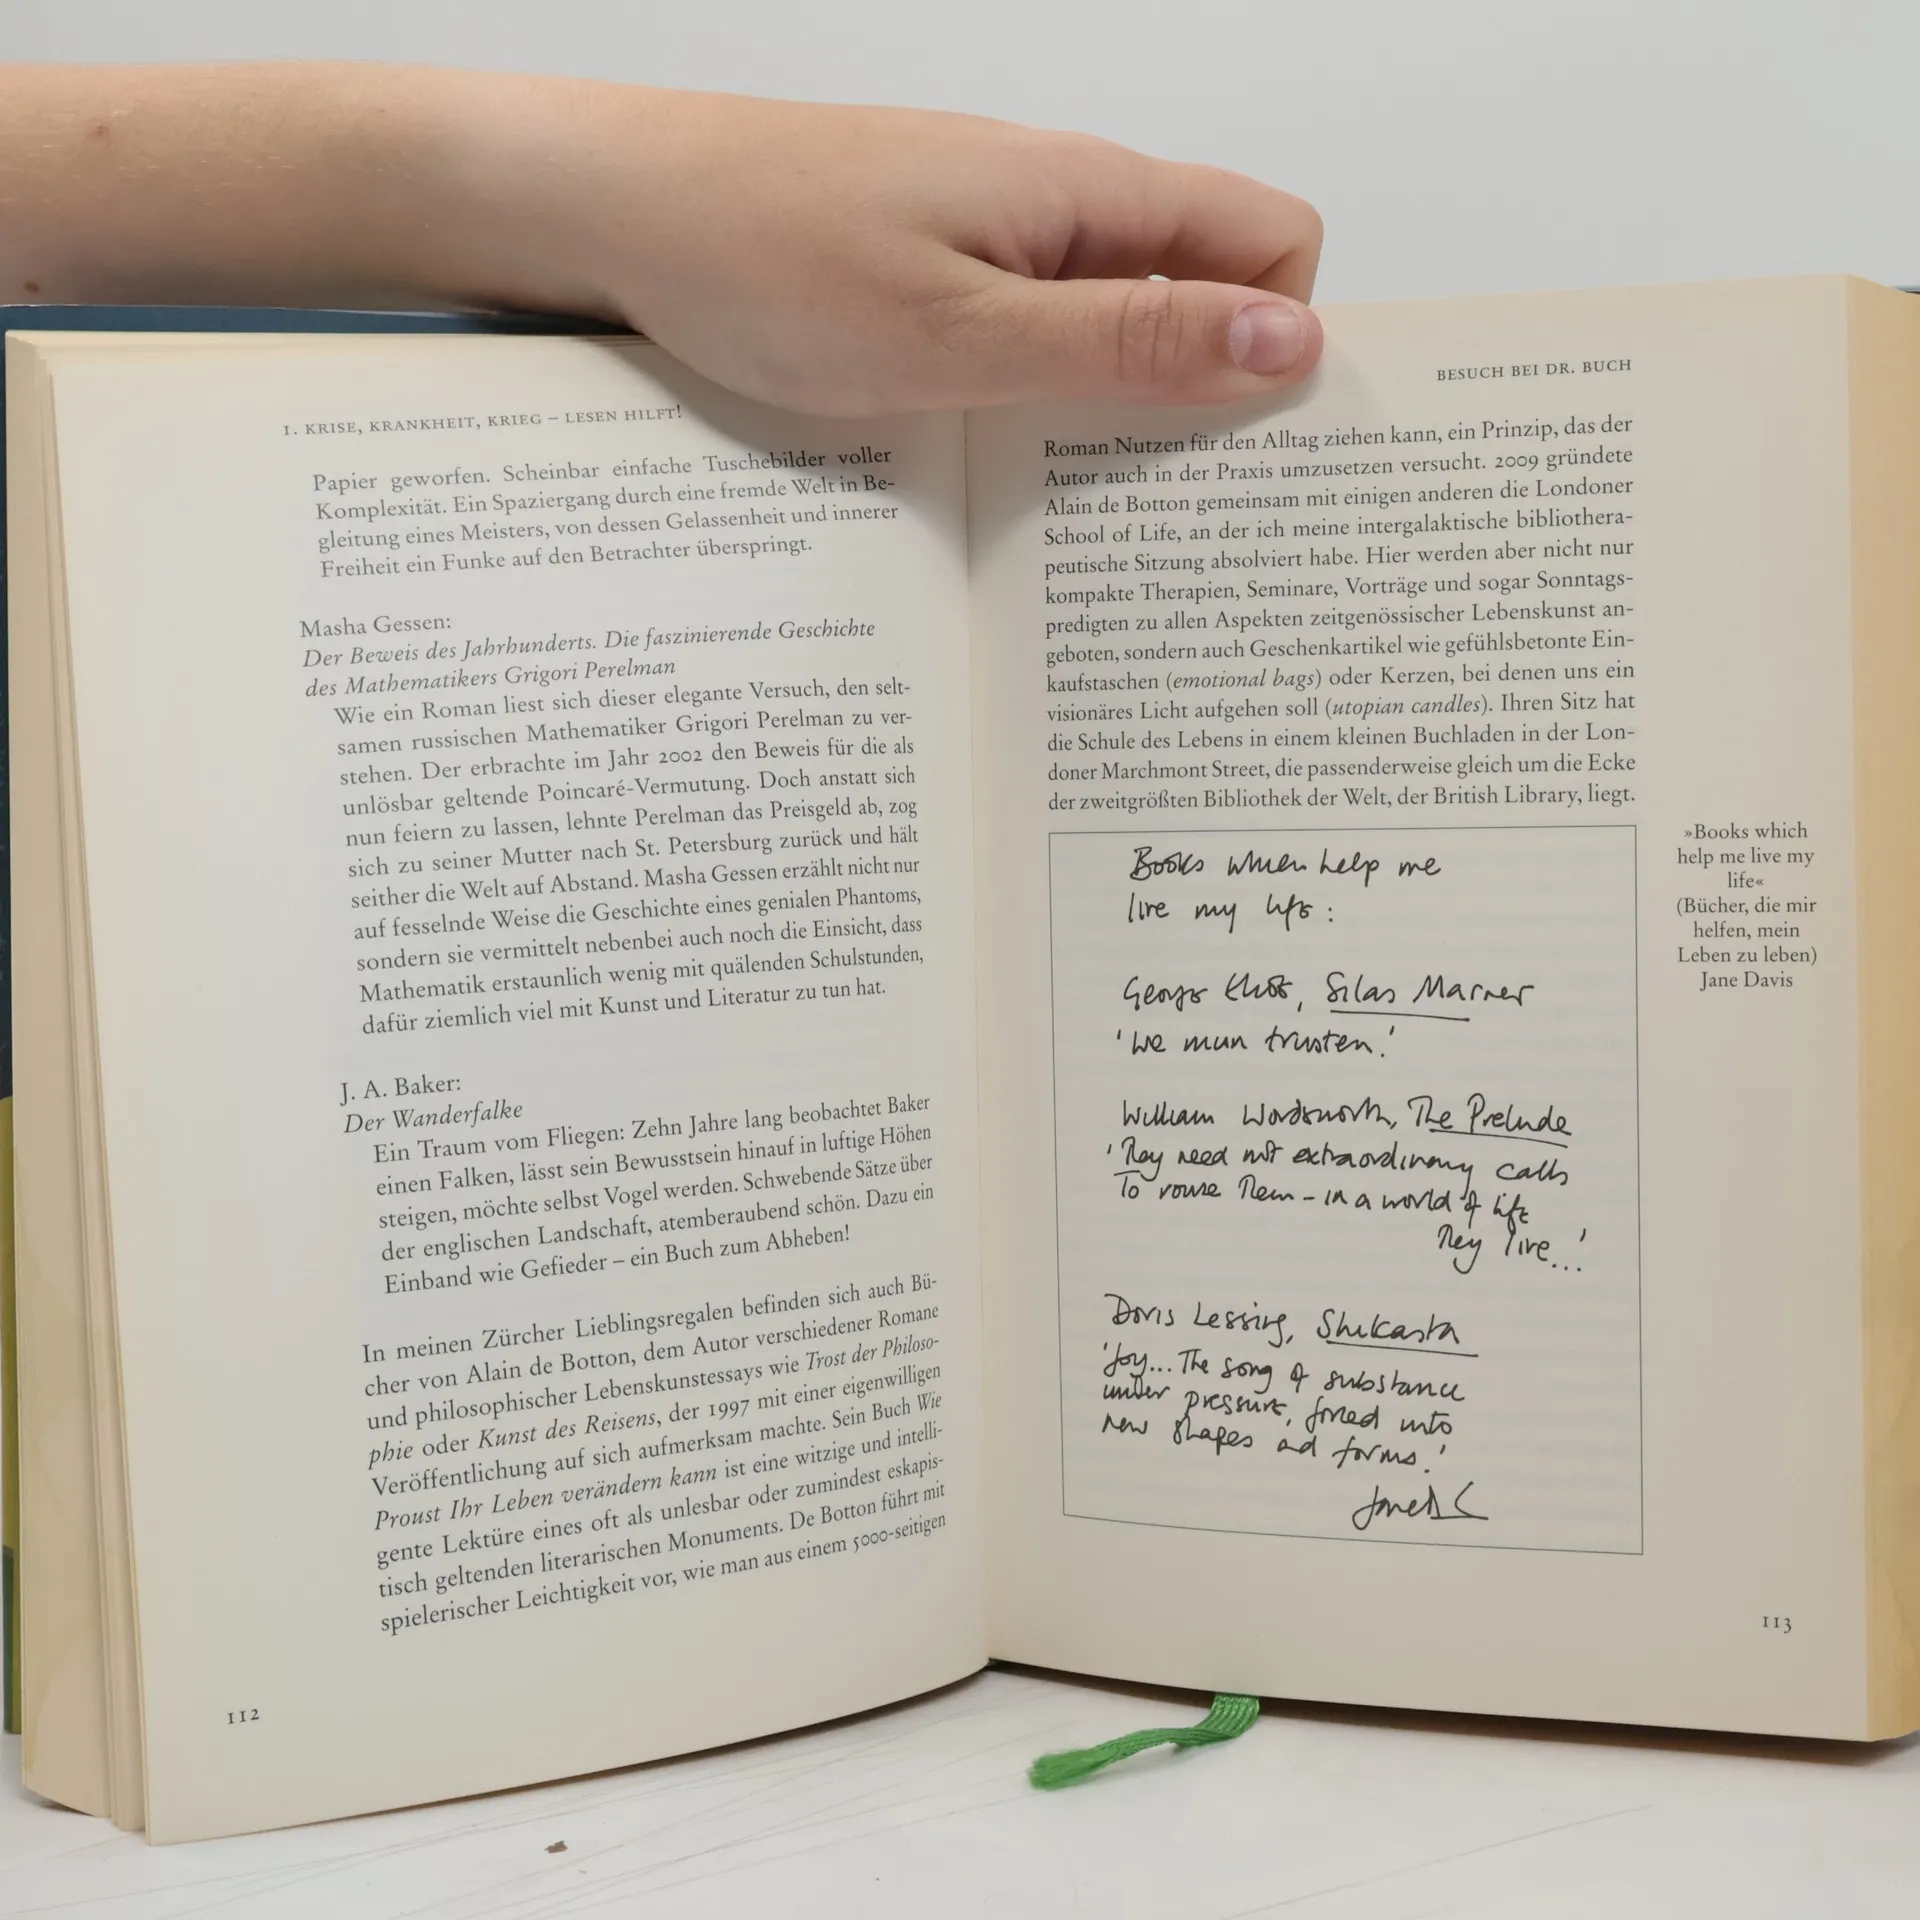 1. KRISE, KRANKHEIT, KRIEG – LESEN HILFT!
Papier geworfen. Scheinbar einfache Tuschebilder voller
Komplexität. Ein Spaziergang durch eine fremde Welt in Be-
gleitung eines Meisters, von dessen Gelassenheit und innerer
Freiheit ein Funke auf den Betrachter überspringt.
Masha Gessen:
Der Beweis des Jahrhunderts. Die faszinierende Geschichte
des Mathematikers Grigori Perelman
Wie ein Roman liest sich dieser elegante Versuch, den selt-
samen russischen Mathematiker Grigori Perelman zu ver-
stehen. Der erbrachte im Jahr 2002 den Beweis für die als
unlösbar geltende Poincaré-Vermutung. Doch anstatt sich
nun feiern zu lassen, lehnte Perelman das Preisgeld ab, zog
sich zu seiner Mutter nach St. Petersburg zurück und hält
seither die Welt auf Abstand. Masha Gessen erzählt nicht nur
auf fesselnde Weise die Geschichte eines genialen Phantoms,
sondern sie vermittelt nebenbei auch noch die Einsicht, dass
Mathematik erstaunlich wenig mit quälenden Schulstunden,
dafür ziemlich viel mit Kunst und Literatur zu tun hat.
J. A. Baker:
Der Wanderfalke
Ein Traum vom Fliegen: Zehn Jahre lang beobachtet Baker
einen Falken, lässt sein Bewusstsein hinauf in luftige Höhen
steigen, möchte selbst Vogel werden. Schwebende Sätze über
der englischen Landschaft, atemberaubend schön. Dazu ein
Einband wie Gefieder – ein Buch zum Abheben!
In meinen Zürcher Lieblingsregalen befinden sich auch Bü-
cher von Alain de Botton, dem Autor verschiedener Romane
und philosophischer Lebenskunstessays wie Trost der Philoso-
phie oder Kunst des Reisens, der 1997 mit einer eigenwilligen
Veröffentlichung auf sich aufmerksam machte. Sein Buch Wie
Proust Ihr Leben verändern kann ist eine witzige und intelli-
gente Lektüre eines oft als unlesbar oder zumindest eskapis-
tisch geltenden literarischen Monuments. De Botton führt mit
spielerischer Leichtigkeit vor, wie man aus einem 5000-seitigen
112
BESUCH BEI DR. BUCH
Roman Nutzen für den Alltag ziehen kann, ein Prinzip, das der
Autor auch in der Praxis umzusetzen versucht. 2009 gründete
Alain de Botton gemeinsam mit einigen anderen die Londoner
School of Life, an der ich meine intergalaktische bibliothera-
peutische Sitzung absolviert habe. Hier werden aber nicht nur
kompakte Therapien, Seminare, Vorträge und sogar Sonntags-
predigten zu allen Aspekten zeitgenössischer Lebenskunst an-
geboten, sondern auch Geschenkartikel wie gefühlsbetonte Ein-
kaufstaschen (emotional bags) oder Kerzen, bei denen uns ein
visionäres Licht aufgehen soll (utopian candles). Ihren Sitz hat
die Schule des Lebens in einem kleinen Buchladen in der Lon-
doner Marchmont Street, die passenderweise gleich um die Ecke
der zweitgrößten Bibliothek der Welt, der British Library, liegt.
Books which help me
live my life :
George Eliot, Silas Marner
'We mun trusten.'
William Wordsworth, The Prelude
'They need not extraordinary calls
To rouse them – in a world of life
they live...'
Doris Lessing, Shikasta
'Joy... The song of substance
under pressure, forced into
new shapes and forms.'
»Books which
help me live my
life«
(Bücher, die mir
helfen, mein
Leben zu leben)
Jane Davis
113